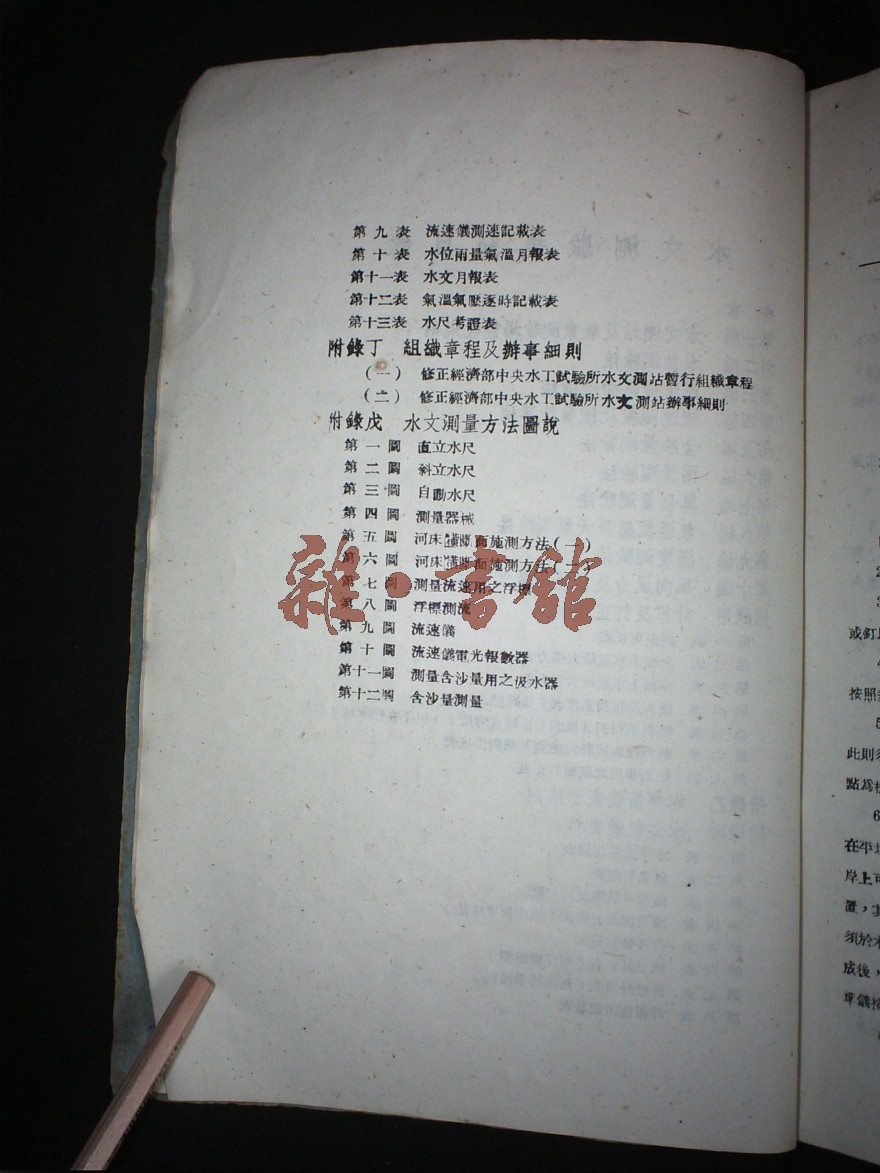 第九表 流速儀測速記載表
第十表 水位雨量氣溫月報表
第十一表 水文月報表
第十二表 氣溫氣壓逐時記載表
第十三表 水尺考證表
附錄丁 組織章程及辦事細則
(一) 修正經濟部中央水工試驗所水文測站暫行組織章程
(二) 修正經濟部中央水工試驗所水文測站辦事細則
附錄戊 水文測量方法圖說
第一圖 直立水尺
第二圖 斜立水尺
第三圖 自動水尺
第四圖 測量器械
第五圖 河床橫斷面施測方法(一)
第六圖 河床橫斷面施測方法(二)
第七圖 測量流速用之浮標
第八圖 浮標測流
第九圖 流速儀
第十圖 流速儀電光報數器
第十一圖 測量含沙量用之汲水器
第十二圖 含沙量測量
雜·書館
2
3
或釘
4
按照
5
此則須
點爲
6
在平
岸上可
置，
須於
成後，
準儀